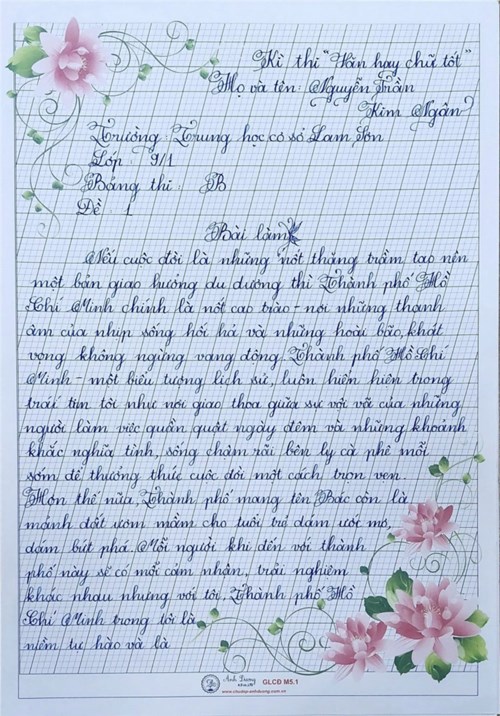 Kì thi "Văn hay chữ tốt"
Họ và tên: Nguyễn Trần
Kim Ngân
Trường: Trung học cơ sở Lam Sơn
Lớp: 9/1
Bảng thi: B
Đề: 1
Bài làm
Nếu cuộc đời là những nốt thăng trầm tạo nên
một bản giao hưởng du dương thì Thành phố Hồ
Chí Minh chính là nốt cao trào - nơi những thanh
âm của nhịp sống hối hả và những hoài bão, khát
vọng không ngừng vang động. Thành phố Hồ Chí
Minh - một biểu tượng lịch sử, luôn hiển hiện trong
trái tim tôi như nơi giao thoa giữa sự vội vã của những
người làm việc quần quật ngày đêm và những khoảnh
khắc nghĩa tình, sống chậm rãi bên ly cà phê mỗi
sớm để thưởng thức cuộc đời một cách trọn vẹn.
Hơn thế nữa, Thành phố mang tên Bác còn là
mảnh đất ươm mầm cho tuổi trẻ dám ước mơ,
dám bứt phá. Mỗi người khi đến với thành
phố này sẽ có mỗi cảm nhận, trải nghiệm
khác nhau nhưng với tôi, Thành phố Hồ
Chí Minh trong tôi là
niềm tự hào và là
Ánh Dương
GLCD M5.1